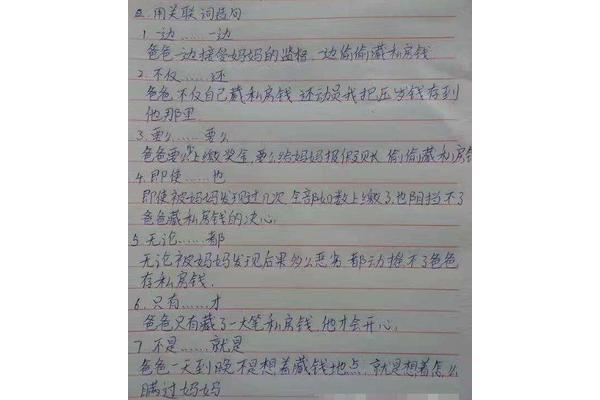 五.用关联词造句
1.一边……一边
爸爸一边接受妈妈的监督,一边偷偷藏私房钱
2.不仅……还
爸爸不仅自己藏私房钱,还动员我把压岁钱存到
他那里.
3.要么……要么
爸爸要么少上缴奖金,要么给妈妈报假账,偷偷藏私房钱
4.即使……也
即使被妈妈发现过几次,全部如数上缴了,也阻挡不了
爸爸藏私房钱的决心.
5.无论……都
无论被妈妈发现后果多么恶劣,都动摇不了爸爸
存私房钱.
6.只有……才
爸爸只有藏了一大笔私房钱,他才会开心.
7.不是……就是
爸爸一天到晚不是想着藏钱地点,就是想着怎么
瞒过妈妈